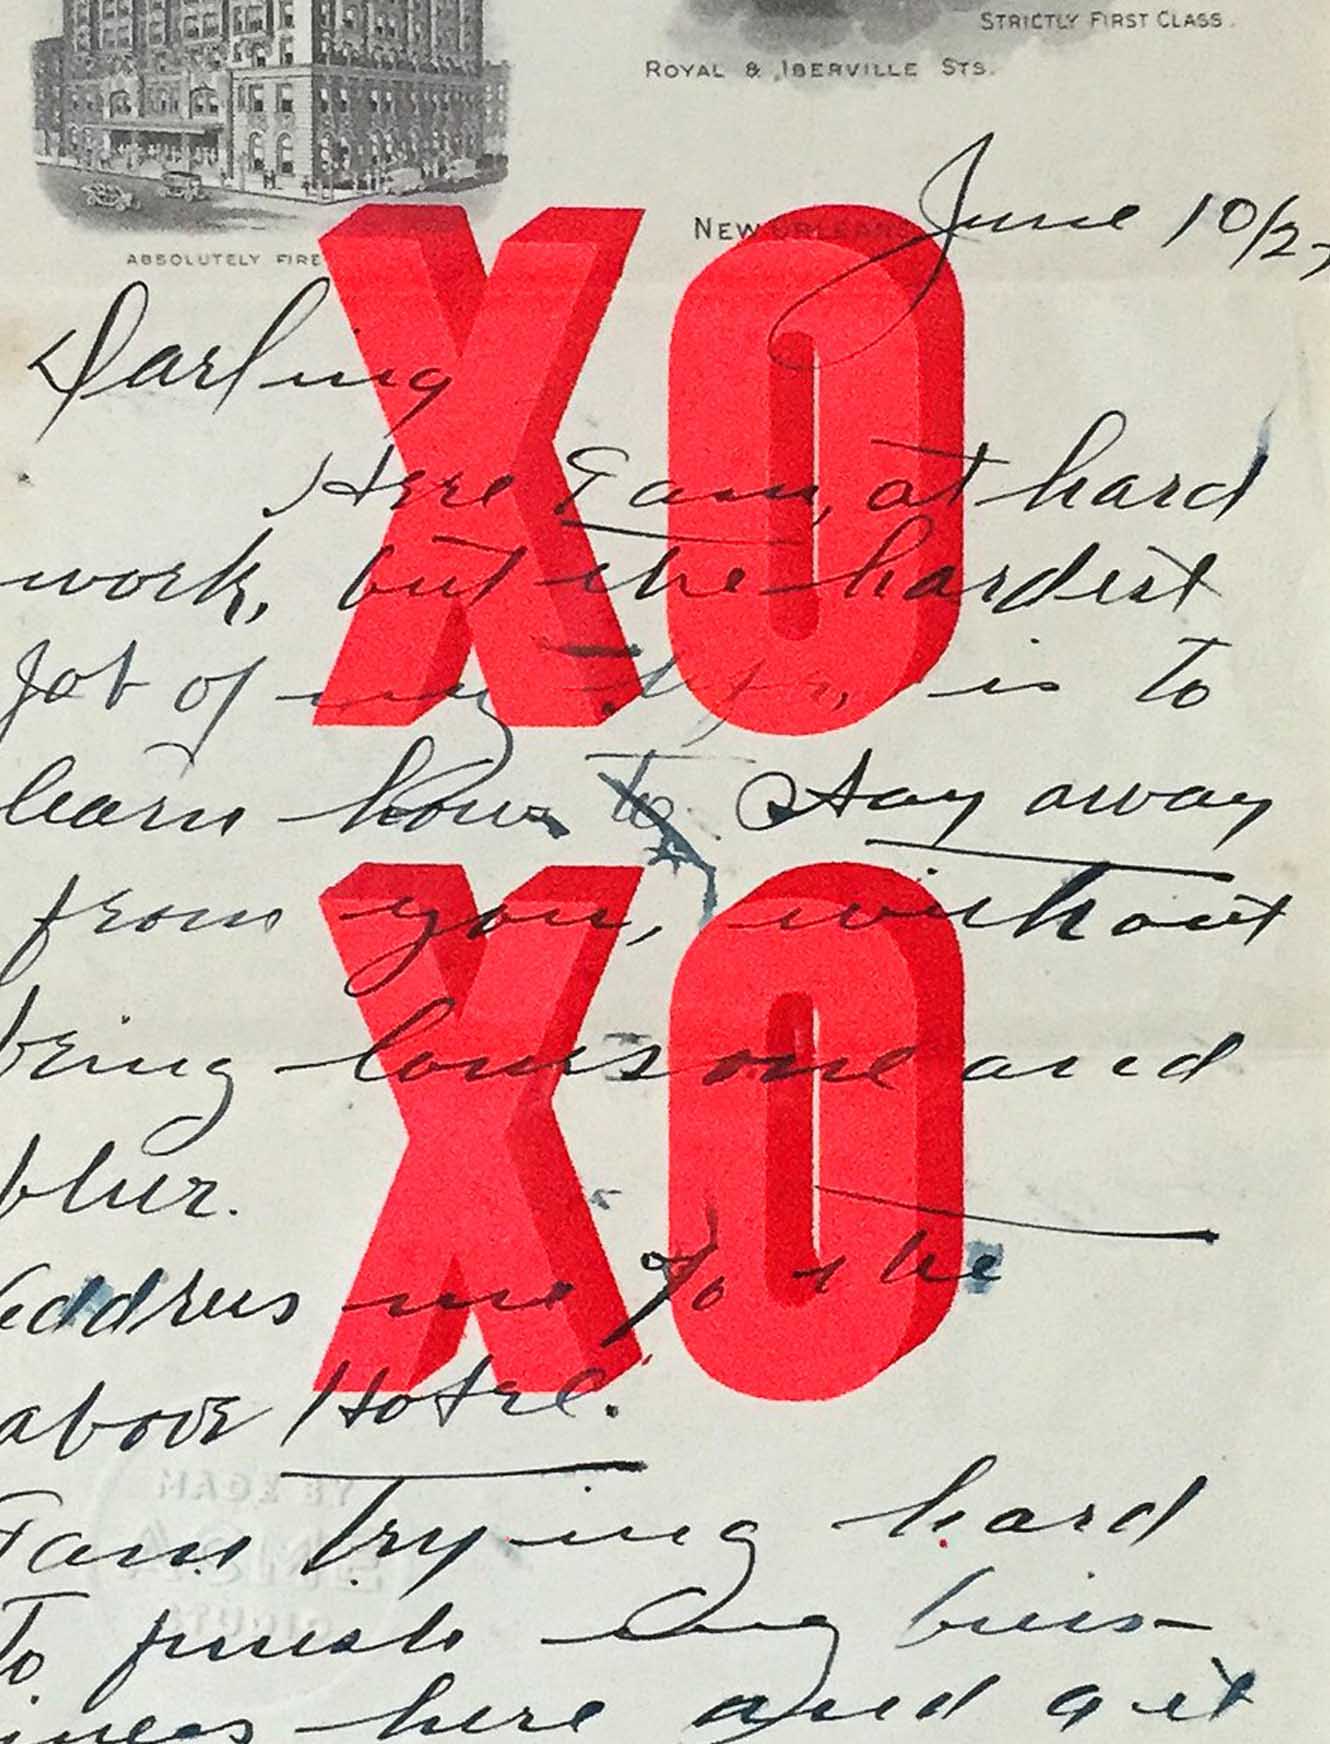 STRICTLY FIRST CLASS.
ROYAL & IBERVILLE STS.
ABSOLUTELY FIRE
NEW ORLEANS
June 10/27
XO
Darling
Here I am, at hard
work, but the hardest
job of my life, is to
learn how to stay away
from you, without
XO
being lonesome and
blue.
Address me % the
above Hotel.
MADE BY
ACME
I am trying hard
To finish my busi-
iness here and get